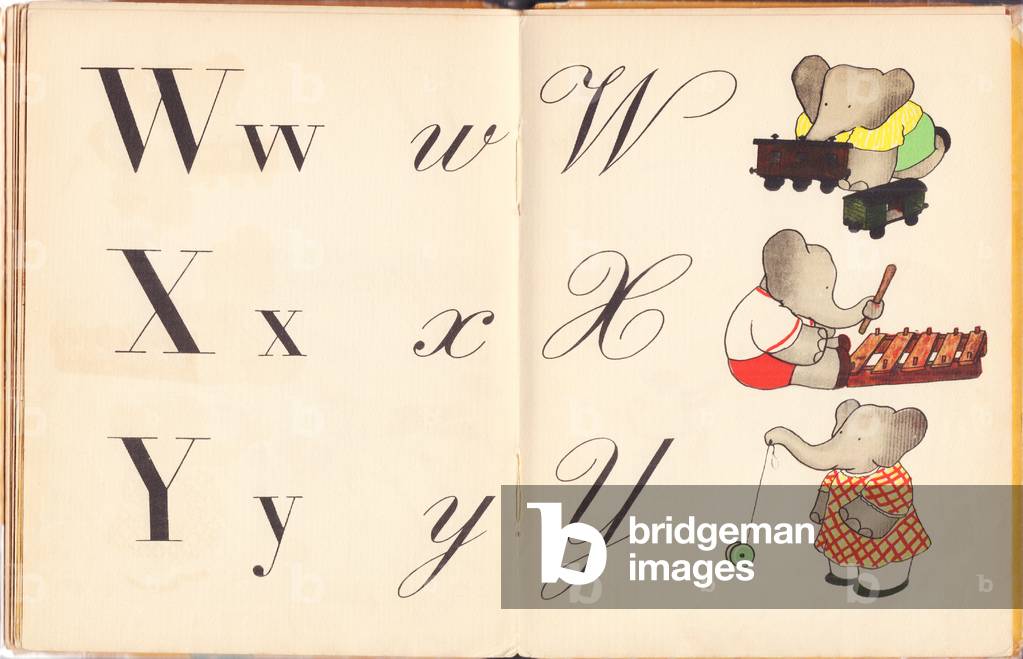 W w w W
X x x X
Y y y Y
b bridgeman
images